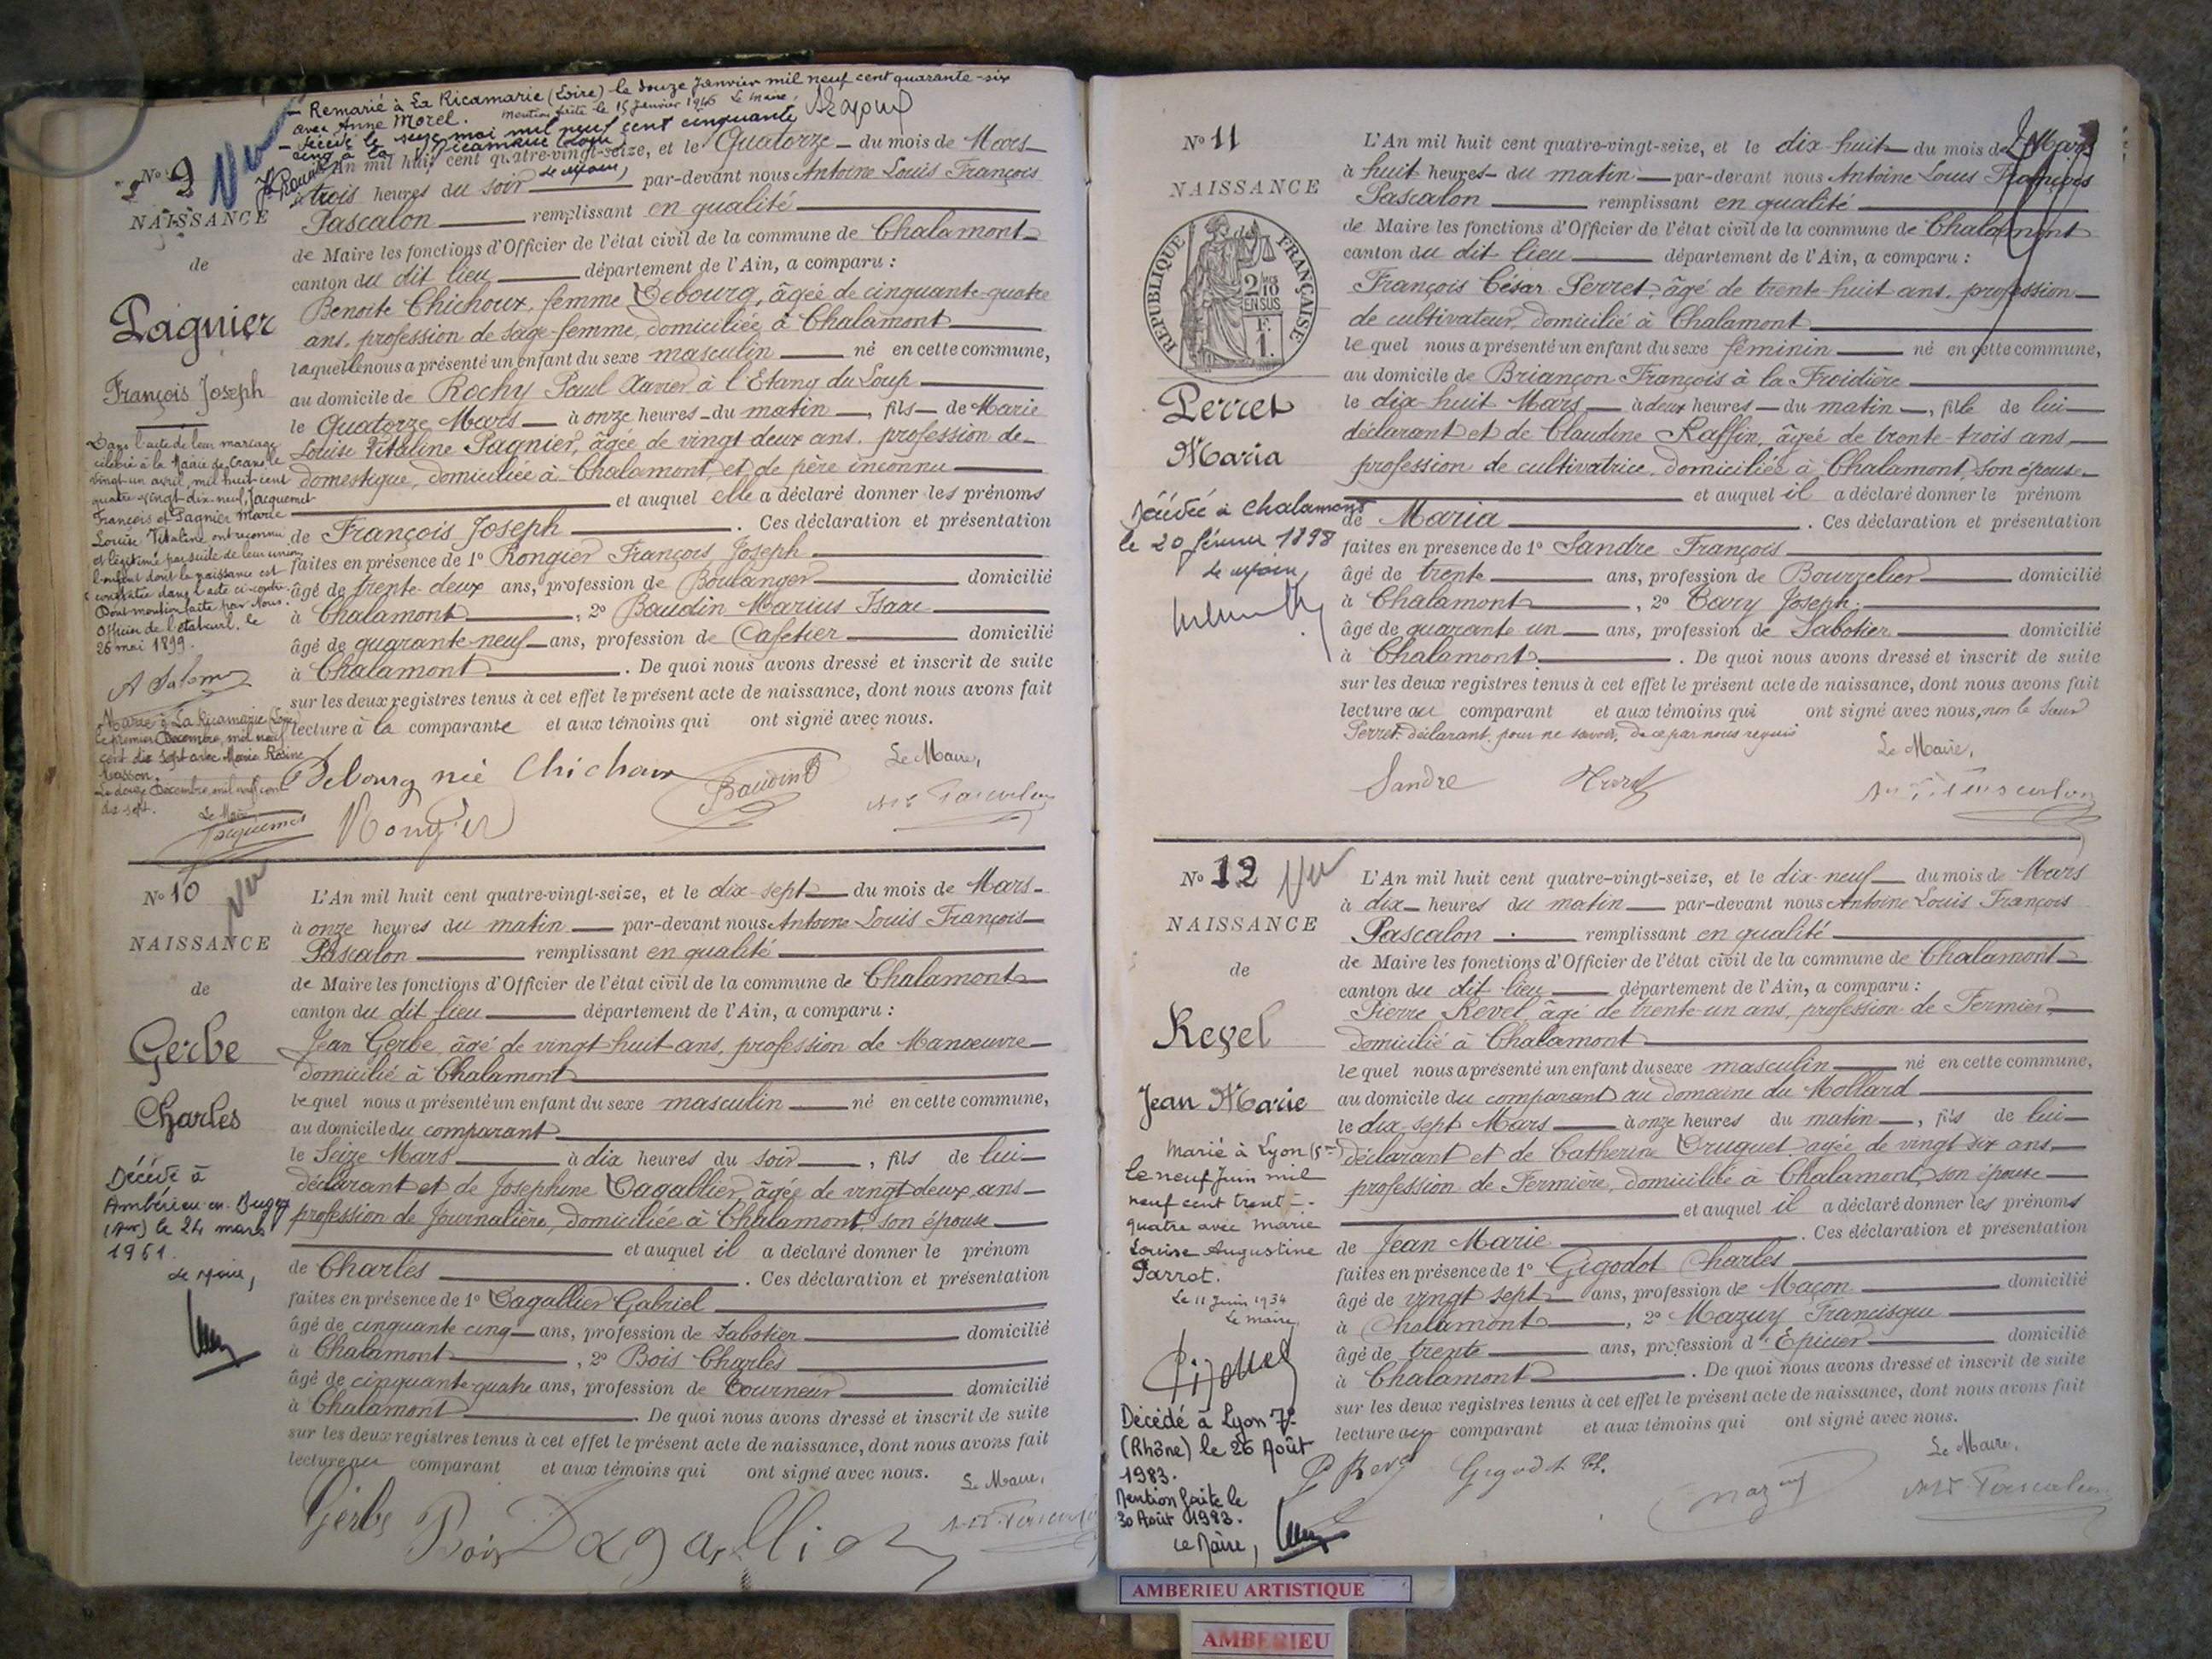 - Remarié à La Ricamarie (Loire) le douze Janvier mil neuf cent quarante-six
avec Anne Morel. mention faite le 15 Janvier 1946 Le Maire,
- Décédé le seize mai mil neuf cent cinquante
cinq à la Ricamarie (Loire)
No 9
Vu
NAISSANCE
de
Pagnier
François Joseph
Dans l'acte de leur mariage
célébré à la Mairie de Crans le
vingt-un avril, mil huit cent
quatre-vingt-dix-neuf, Jacquemet
François et Pagnier Marie
Louise Vitaline ont reconnu
et légitimé par suite de leur union
l'enfant dont la naissance est
constatée dans l'acte ci-contre.
Dont mention faite par Nous
Officier de l'état civil. le
26 mai 1899.
Marié à La Ricamarie (Loire)
le premier Décembre, mil neuf
cent dix sept avec Marie Rosine
Masson.
Le douze Décembre mil neuf cent
dix-sept.
Le Maire,
Jacquemet
L'An mil huit cent quatre-vingt-seize, et le Quatorze du mois de Mars
à trois heures du soir par-devant nous Antoine Louis François
Pascalon remplissant en qualité
de Maire les fonctions d'Officier de l'état civil de la commune de Chalamont
canton du dit lieu département de l'Ain, a comparu :
Benoite Chichoux, femme Debourg, âgée de cinquante-quatre
ans, profession de sage-femme, domiciliée à Chalamont
laquelle nous a présenté un enfant du sexe masculin né en cette commune,
au domicile de Rochy Paul Xavier à l'Etang du Loup
le Quatorze Mars à onze heures du matin, fils de Marie
Louise Vitaline Pagnier, âgée de vingt-deux ans, profession de
domestique, domiciliée à Chalamont, et de père inconnu
et auquel elle a déclaré donner les prénoms
de François Joseph. Ces déclaration et présentation
faites en présence de 1º Rongier François Joseph
âgé de trente-deux ans, profession de Boulanger domicilié
à Chalamont, 2º Baudin Marius Isaac
âgé de quarante-neuf ans, profession de Cafetier domicilié
à Chalamont. De quoi nous avons dressé et inscrit de suite
sur les deux registres tenus à cet effet le présent acte de naissance, dont nous avons fait
lecture à la comparante et aux témoins qui ont signé avec nous.
Le Maire,
Debourg née Chichoux
Baudin
Rongier
No 10
Vu
NAISSANCE
de
Gerbe
Charles
Décédé à
Ambérieu-en-Bugey
(Ain) le 24 mars
1961.
Le Maire,
L'An mil huit cent quatre-vingt-seize, et le dix-sept du mois de Mars
à onze heures du matin par-devant nous Antoine Louis François
Pascalon remplissant en qualité
de Maire les fonctions d'Officier de l'état civil de la commune de Chalamont
canton du dit lieu département de l'Ain, a comparu :
Jean Gerbe, âgé de vingt-huit ans, profession de Manoeuvre
domicilié à Chalamont
lequel nous a présenté un enfant du sexe masculin né en cette commune,
au domicile du comparant
le Seize Mars à dix heures du soir, fils de lui
déclarant et de Josephine Dagallier, âgée de vingt deux ans
profession de Journalière, domiciliée à Chalamont, son épouse
et auquel il a déclaré donner le prénom
de Charles. Ces déclaration et présentation
faites en présence de 1º Dagallier Gabriel
âgé de cinquante cinq ans, profession de Sabotier domicilié
à Chalamont, 2º Bois Charles
âgé de cinquante-quatre ans, profession de Tourneur domicilié
à Chalamont. De quoi nous avons dressé et inscrit de suite
sur les deux registres tenus à cet effet le présent acte de naissance, dont nous avons fait
lecture au comparant et aux témoins qui ont signé avec nous.
Le Maire,
Gerbe Bois Dagallier
No 11
NAISSANCE
REPUBLIQUE FRANÇAISE
2/10
EN SUS
F.
1.
Perret
Maria
Décédée à Chalamont
le 20 février 1898
Le Maire,
L'An mil huit cent quatre-vingt-seize, et le dix-huit du mois de Mars
à huit heures du matin par-devant nous Antoine Louis François
Pascalon remplissant en qualité
de Maire les fonctions d'Officier de l'état civil de la commune de Chalamont
canton du dit lieu département de l'Ain, a comparu :
François César Perret, âgé de trente-huit ans, profession
de cultivateur, domicilié à Chalamont
lequel nous a présenté un enfant du sexe féminin né en cette commune,
au domicile de Briançon François à la Froidière
le dix-huit Mars à deux heures du matin, fille de lui
déclarant et de Claudine Raffin, âgée de trente-trois ans,
profession de cultivatrice, domiciliée à Chalamont, son épouse
et auquel il a déclaré donner le prénom
de Maria. Ces déclaration et présentation
faites en présence de 1º Sandre François
âgé de trente ans, profession de Bourrelier domicilié
à Chalamont, 2º Joseph
âgé de quarante un ans, profession de Sabotier domicilié
à Chalamont. De quoi nous avons dressé et inscrit de suite
sur les deux registres tenus à cet effet le présent acte de naissance, dont nous avons fait
lecture au comparant et aux témoins qui ont signé avec nous, non le Sieur
Perret, déclarant, pour ne savoir, de ce par nous requis
Le Maire,
Sandre
No 12
Vu
NAISSANCE
de
Revel
Jean Marie
Marié à Lyon (5me)
le neuf Juin mil
neuf cent trente-
quatre avec Marie
Louise Augustine
Parrot.
Le 11 Juin 1934
Le Maire,
Décédé à Lyon 7e
(Rhône) le 26 Août
1983.
Mention faite le
30 Août 1983.
Le Maire,
L'An mil huit cent quatre-vingt-seize, et le dix-neuf du mois de Mars
à dix heures du matin par-devant nous Antoine Louis François
Pascalon remplissant en qualité
de Maire les fonctions d'Officier de l'état civil de la commune de Chalamont
canton du dit lieu département de l'Ain, a comparu :
Pierre Revel, âgé de trente-un ans, profession de Fermier
domicilié à Chalamont
lequel nous a présenté un enfant du sexe masculin né en cette commune,
au domicile du comparant au domaine du Mollard
le dix-sept Mars à onze heures du matin, fils de lui
déclarant et de Catherine Druguet âgée de vingt-six ans
profession de Fermière, domiciliée à Chalamont, son épouse
et auquel il a déclaré donner les prénoms
de Jean Marie. Ces déclaration et présentation
faites en présence de 1º Gigodot Charles
âgé de vingt sept ans, profession de Maçon domicilié
à Chalamont, 2º Mazuy Francisque
âgé de trente ans, profession d'Epicier domicilié
à Chalamont. De quoi nous avons dressé et inscrit de suite
sur les deux registres tenus à cet effet le présent acte de naissance, dont nous avons fait
lecture au comparant et aux témoins qui ont signé avec nous.
Le Maire,
P Revel Gigodot Ch. Mazuy
AMBERIEU ARTISTIQUE
AMBERIEU